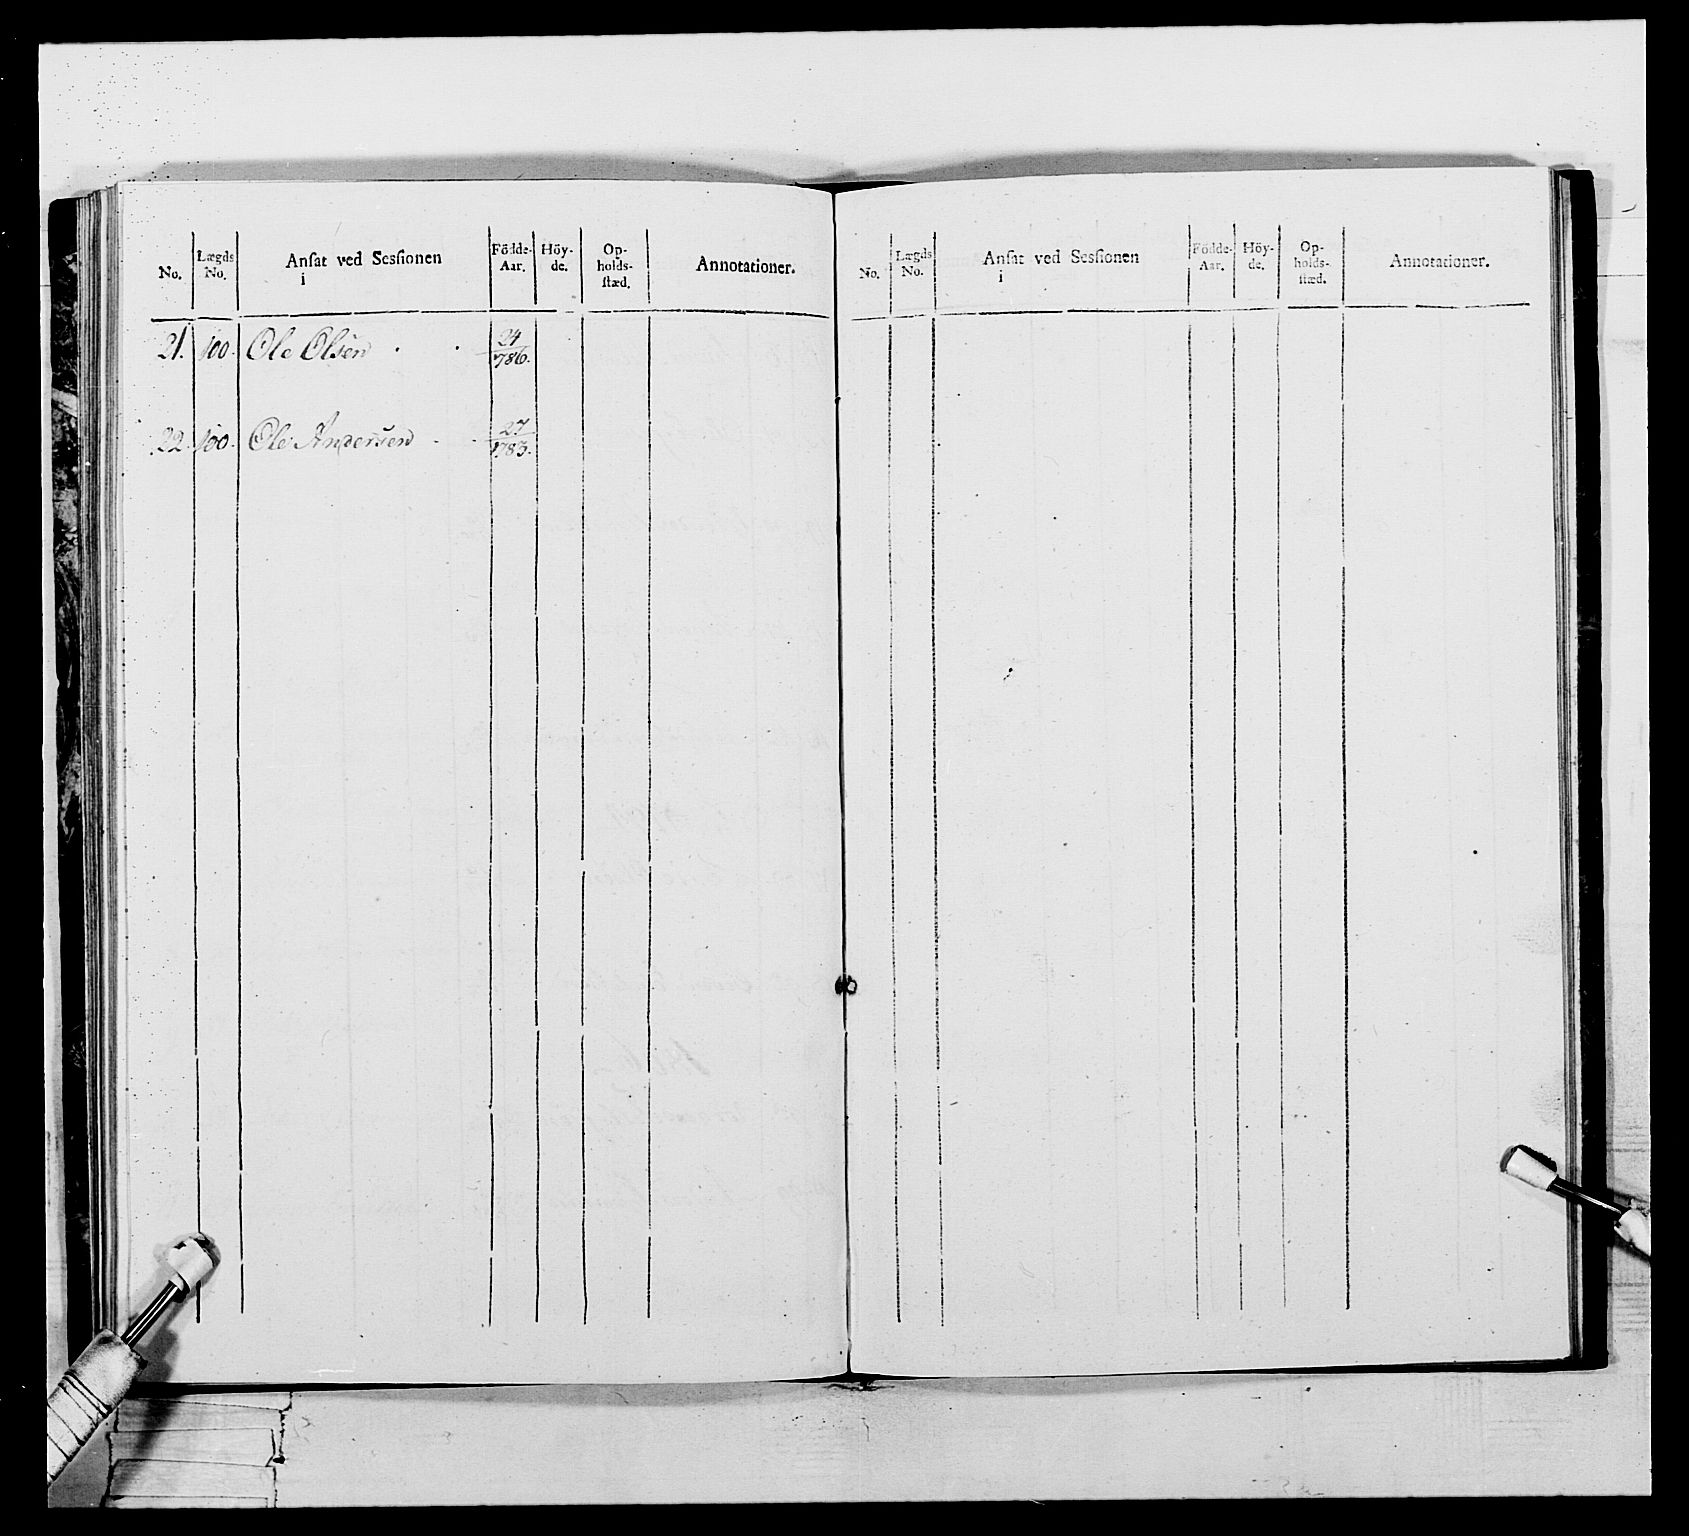 No. Lægds No. Ansat ved Sessionen i Födde-Aar. Höy-de. Op-holds-stæd. Annotationer.
21. 100. Ole Olsen 24/786.
22. 100. Ole Andersen 27/1783.
No. Lægds No. Ansat ved Sessionen i Födde-Aar. Höy-de. Op-holds-stæd. Annotationer.